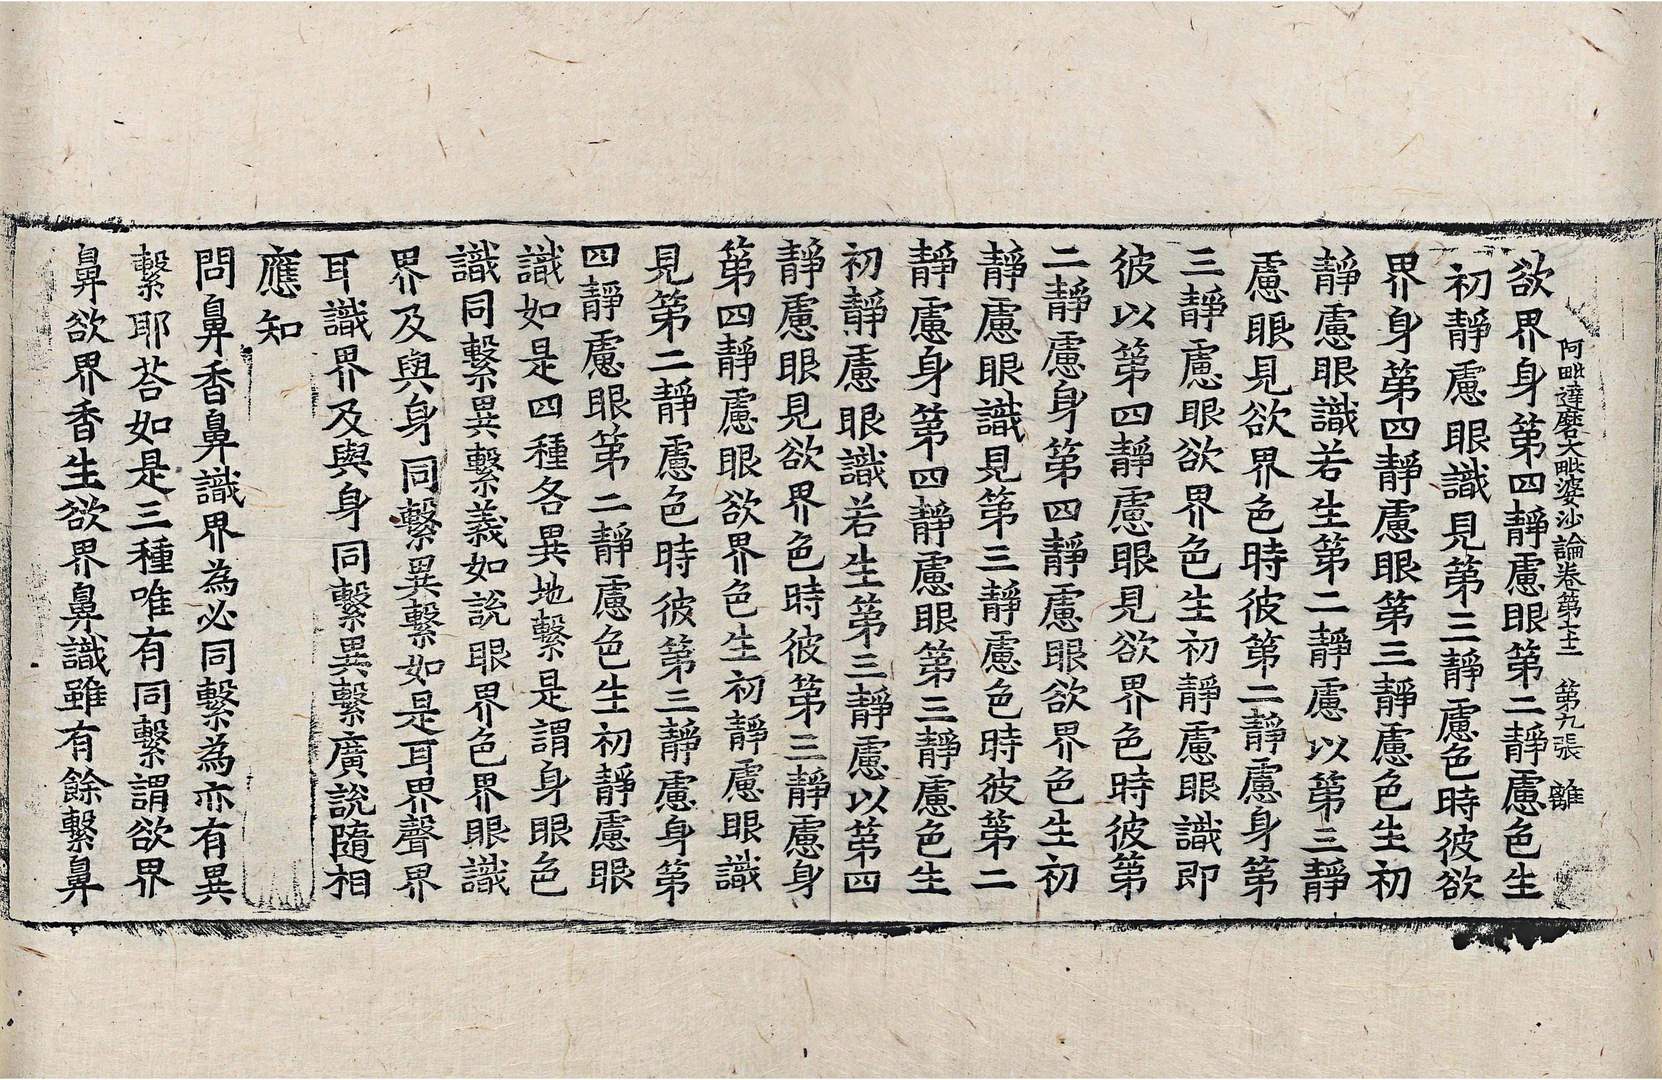 阿毗達磨大毗婆沙論卷第七十三　第九張　離
欲界身第四靜慮眼第二靜慮色生
初靜慮眼識見第三靜慮色時彼欲
界身第四靜慮眼第三靜慮色生初
靜慮眼識若生第二靜慮以第三靜
慮眼見欲界色時彼第二靜慮身第
三靜慮眼欲界色生初靜慮眼識即
彼以第四靜慮眼見欲界色時彼第
二靜慮身第四靜慮眼欲界色生初
靜慮眼識見第三靜慮色時彼第二
靜慮身第四靜慮眼第三靜慮色生
初靜慮眼識若生第三靜慮以第四
靜慮眼見欲界色時彼第三靜慮身
第四靜慮眼欲界色生初靜慮眼識
見第二靜慮色時彼第三靜慮身第
四靜慮眼第二靜慮色生初靜慮眼
識如是四種各異地繫是謂身眼色
識同繫異繫義如說眼界色界眼識
界及與身同繫異繫如是耳界聲界
耳識界及與身同繫異繫廣說隨相
應知
問鼻香鼻識界為必同繫為亦有異
繫耶荅如是三種唯有同繫謂欲界
鼻欲界香生欲界鼻識雖有餘繫鼻